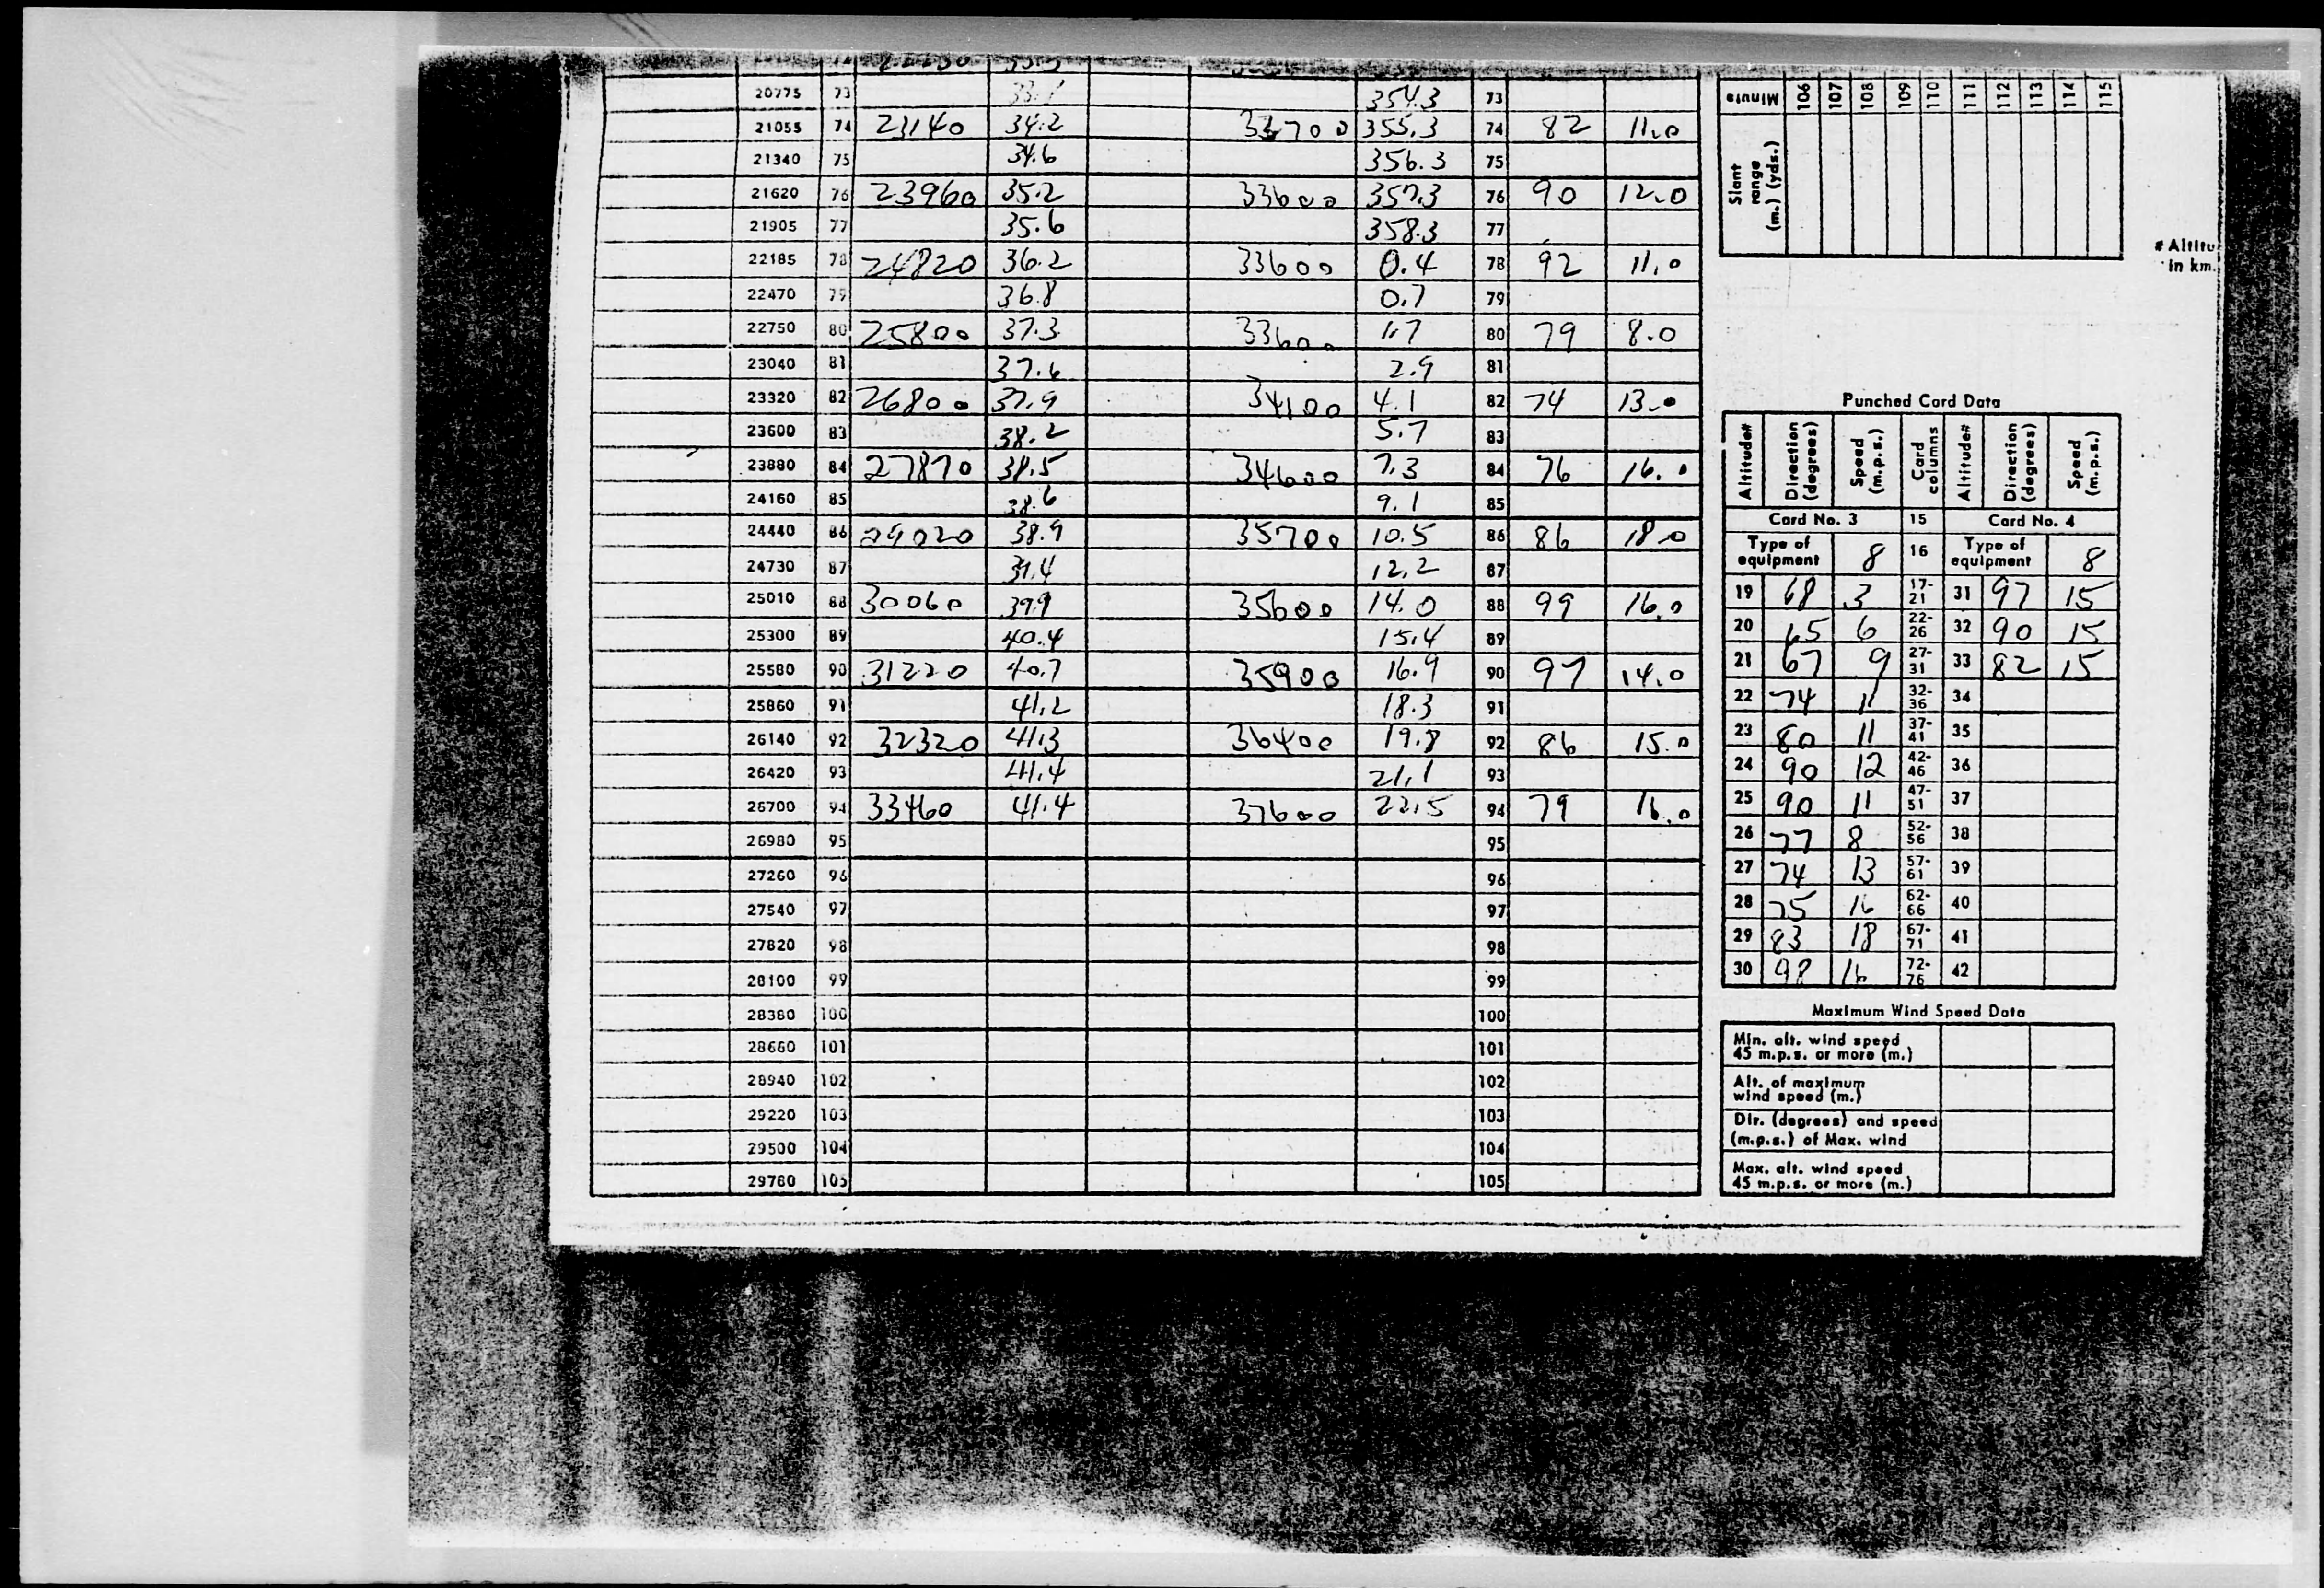 20775 73 33.7 354.3 73
21055 74 23140 34.2 33700 355.3 74 82 11.0
21340 75 34.6 356.3 75
21620 76 23960 35.2 33600 357.3 76 90 12.0
21905 77 35.6 358.3 77
22185 78 24820 36.2 33600 0.4 78 92 11.0
22470 79 36.8 0.7 79
22750 80 25800 37.3 33600 1.7 80 79 8.0
23040 81 37.6 2.9 81
23320 82 26800 37.9 34100 4.1 82 74 13.0
23600 83 38.2 5.7 83
23880 84 27870 38.5 34600 7.3 84 76 16.0
24160 85 38.6 9.1 85
24440 86 29020 38.9 35700 10.5 86 86 18.0
24730 87 39.4 12.2 87
25010 88 30060 39.9 35600 14.0 88 99 16.0
25300 89 40.4 15.4 89
25580 90 31220 40.7 35900 16.9 90 97 14.0
25860 91 41.2 18.3 91
26140 92 32320 41.3 36400 19.8 92 86 15.0
26420 93 41.4 21.1 93
26700 94 33460 41.4 37600 22.5 94 79 16.0
26980 95 95
27260 96 96
27540 97 97
27820 98 98
28100 99 99
28380 100 100
28660 101 101
28940 102 102
29220 103 103
29500 104 104
29780 105 105
Minute 106 107 108 109 110 111 112 113 114 115
Slant range (m.) (yds.)
# Altitu
in km.
Punched Card Data
Altitude# Direction (degrees) Speed (m.p.s.) Card columns Altitude# Direction (degrees) Speed (m.p.s.)
Card No. 3 15 Card No. 4
Type of equipment 8 16 Type of equipment 8
19 68 3 17-21 31 97 15
20 65 6 22-26 32 90 15
21 67 9 27-31 33 82 15
22 74 11 32-36 34
23 80 11 37-41 35
24 90 12 42-46 36
25 90 11 47-51 37
26 77 8 52-56 38
27 74 13 57-61 39
28 75 16 62-66 40
29 83 18 67-71 41
30 98 16 72-76 42
Maximum Wind Speed Data
Min. alt. wind speed
45 m.p.s. or more (m.)
Alt. of maximum
wind speed (m.)
Dir. (degrees) and speed
(m.p.s.) of Max. wind
Max. alt. wind speed
45 m.p.s. or more (m.)